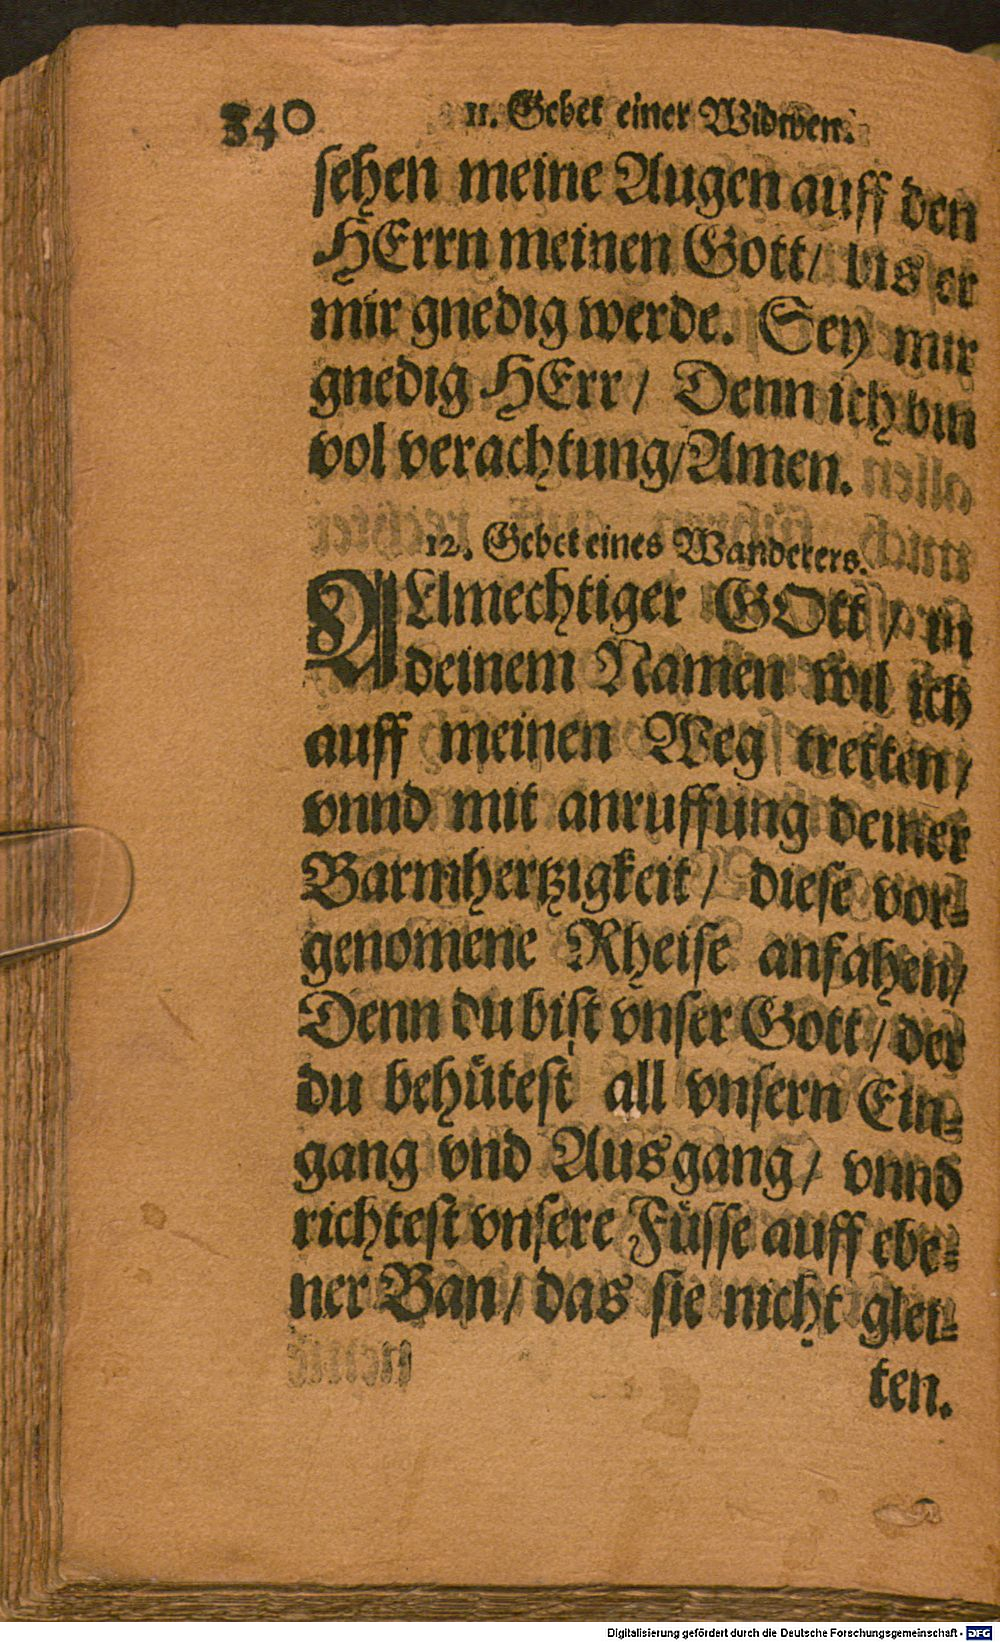 340
11. Gebet einer Widwen.
sehen meine Augen auff den
HErrn meinen Gott/ bis er
mir gnedig werde. Sey mir
gnedig HErr/ Denn ich bin
vol verachtung/ Amen.
12. Gebet eines Wanderers.
ALlmechtiger GOtt/ in
deinem Namen wil ich
auff meinen Weg tretten/
vnnd mit anruffung deiner
Barmhertzigkeit/ diese vor-
genomene Rheise anfahen/
Denn du bist vnser Gott/ der
du behütest all vnsern Ein-
gang vnd Ausgang/ vnnd
richtest vnsere Füsse auff ebe-
ner Ban/ das sie nicht glei-
ten.
Digitalisierung gefördert durch die Deutsche Forschungsgemeinschaft - DFG